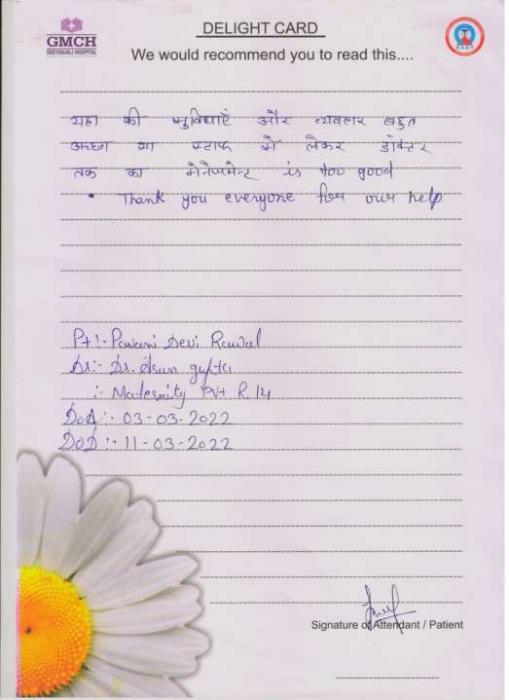 DELIGHT CARD
GMCH
GEETANJALI HOSPITAL
We would recommend you to read this....
यहा की सुविधाएँ और व्यवहार बहुत
अच्छा था स्टाफ से लेकर डॉक्टर
तक का मेनेजमेन्ट is too good
• Thank you everyone for our help
Pt:- Pawani Devi Rawal
Dr:- Dr. Arun gupta
:- Maternity Pvt R. 14
DOA:- 03-03-2022
DOD:- 11-03-2022
Signature of Attendant / Patient